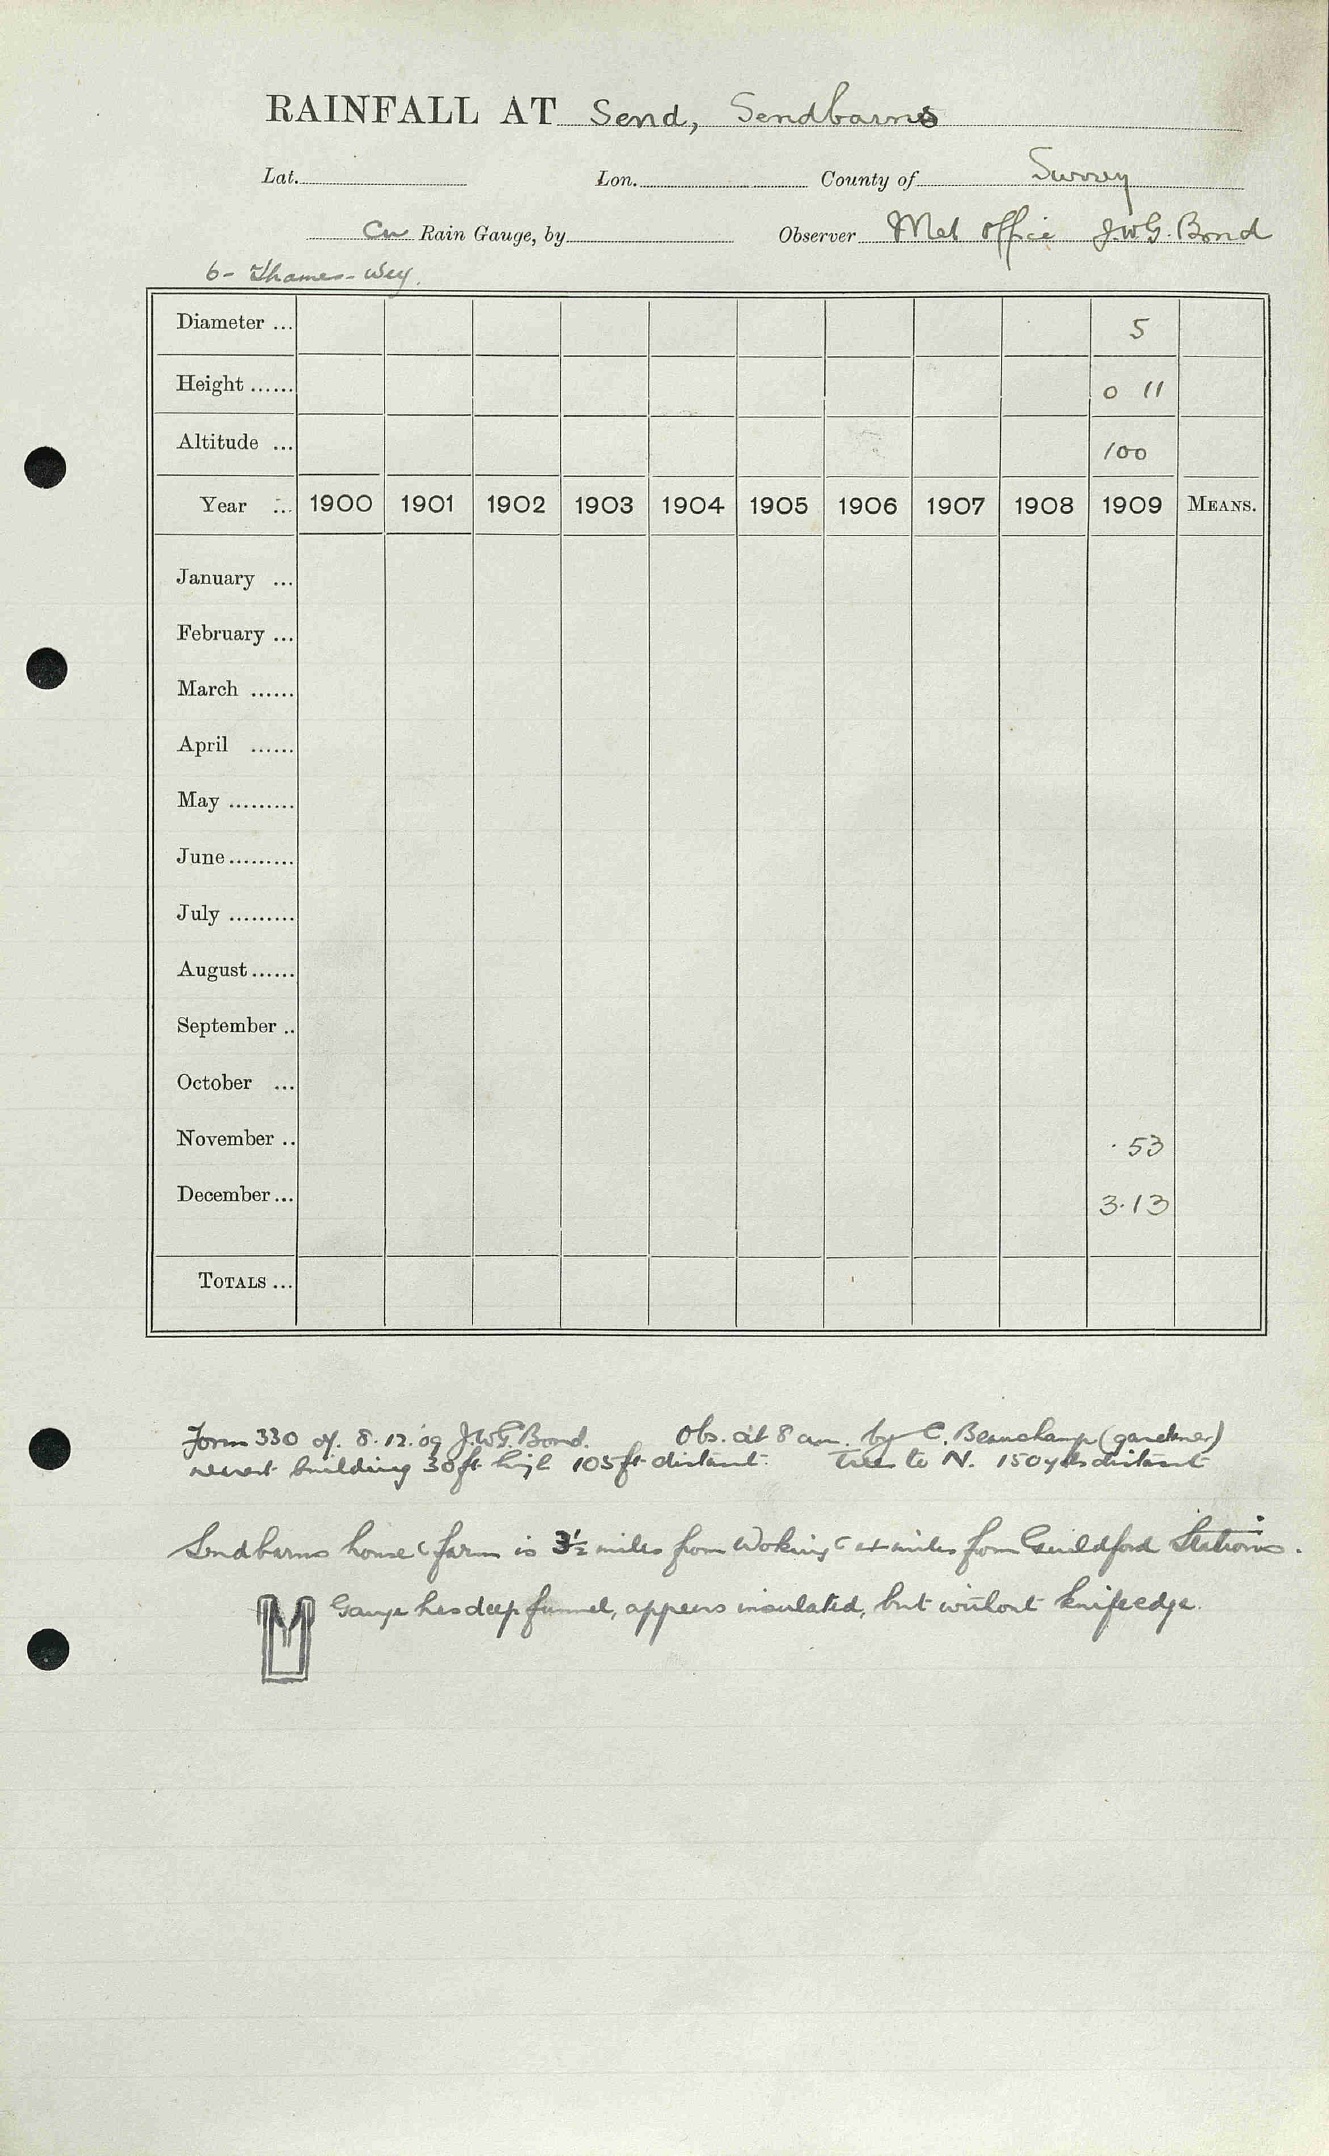 RAINFALL AT Send, Sendbarns
Lat. Lon. County of Surrey
Cu Rain Gauge, by Observer Met Office J.W.G. Bond
6 - Thames - Wey.
Diameter ... 5
Height ...... 0 11
Altitude ... 100
Year ... 1900 1901 1902 1903 1904 1905 1906 1907 1908 1909 MEANS.
January ...
February ...
March ......
April ......
May .........
June .........
July .........
August ......
September ..
October ...
November .. .53
December ... 3.13
TOTALS ...
Form 330 of 8.12.09 J.W.G. Bond. Obs. at 8 am. by C. Beauchamp (gardener)
nearest building 30ft high 105ft distant. Trees to N. 150yds distant
Sendbarns house & farm is 3½ miles from Woking & 4 miles from Guildford Stations.
Gauge has deep funnel, appears insulated, but without knife edge.